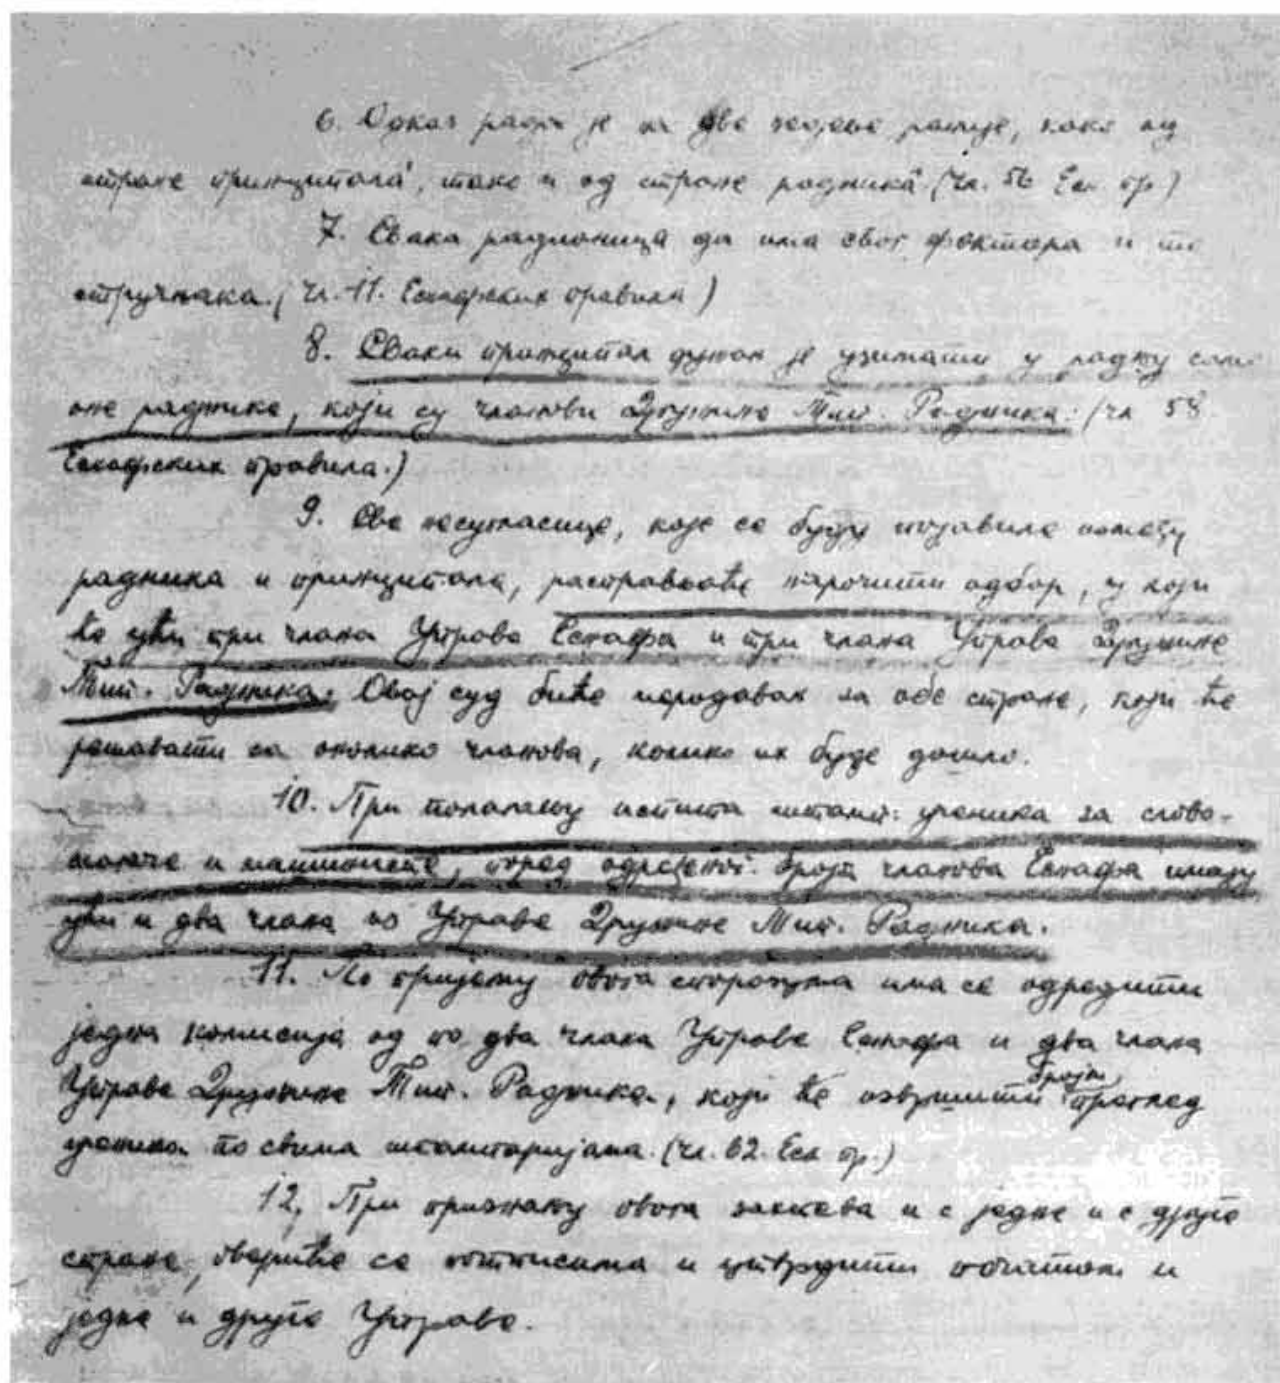 6. Отказ рада је на две недеље раније, како од
стране принципала, тако и од стране радника (чл. 56 Есн. пр.)
7. Свака радионица да има свог фактора и то
стручњака. (чл. 11. Еснафских правила)
8. Сваки принципал дужан је узимати у радњу само
оне раднике, који су чланови Дружине Тип. Радника. (чл 58
Еснафских правила.)
9. Све несугласице, које се буду појавиле између
радника и принципала, расправљаће нарочити одбор, у који
ће ући три члана Управе Еснафа и три члана Управе Дружине
Тип. Радника. Овај суд биће меродаван за обе стране, који ће
решавати са онолико чланова, колико их буде дошло.
10. При полагању испита штамп. ученика за слово-
слагаче и машинисте, поред одређеног броја чланова Еснафа имају
ући и два члана из Управе Дружине Тип. Радника.
11. По пријему овога споразума има се одредити
једна комисија од по два члана Управе Еснафа и два члана
Управе Дружине Тип. Радника, који ће извршити бројни преглед
ученика по свима штампаријама. (чл. 62. Есн пр.)
12, При признању овога захтева и с једне и с друге
стране, овериће се потписима и утврдити печатом и
једне и друге Управе.